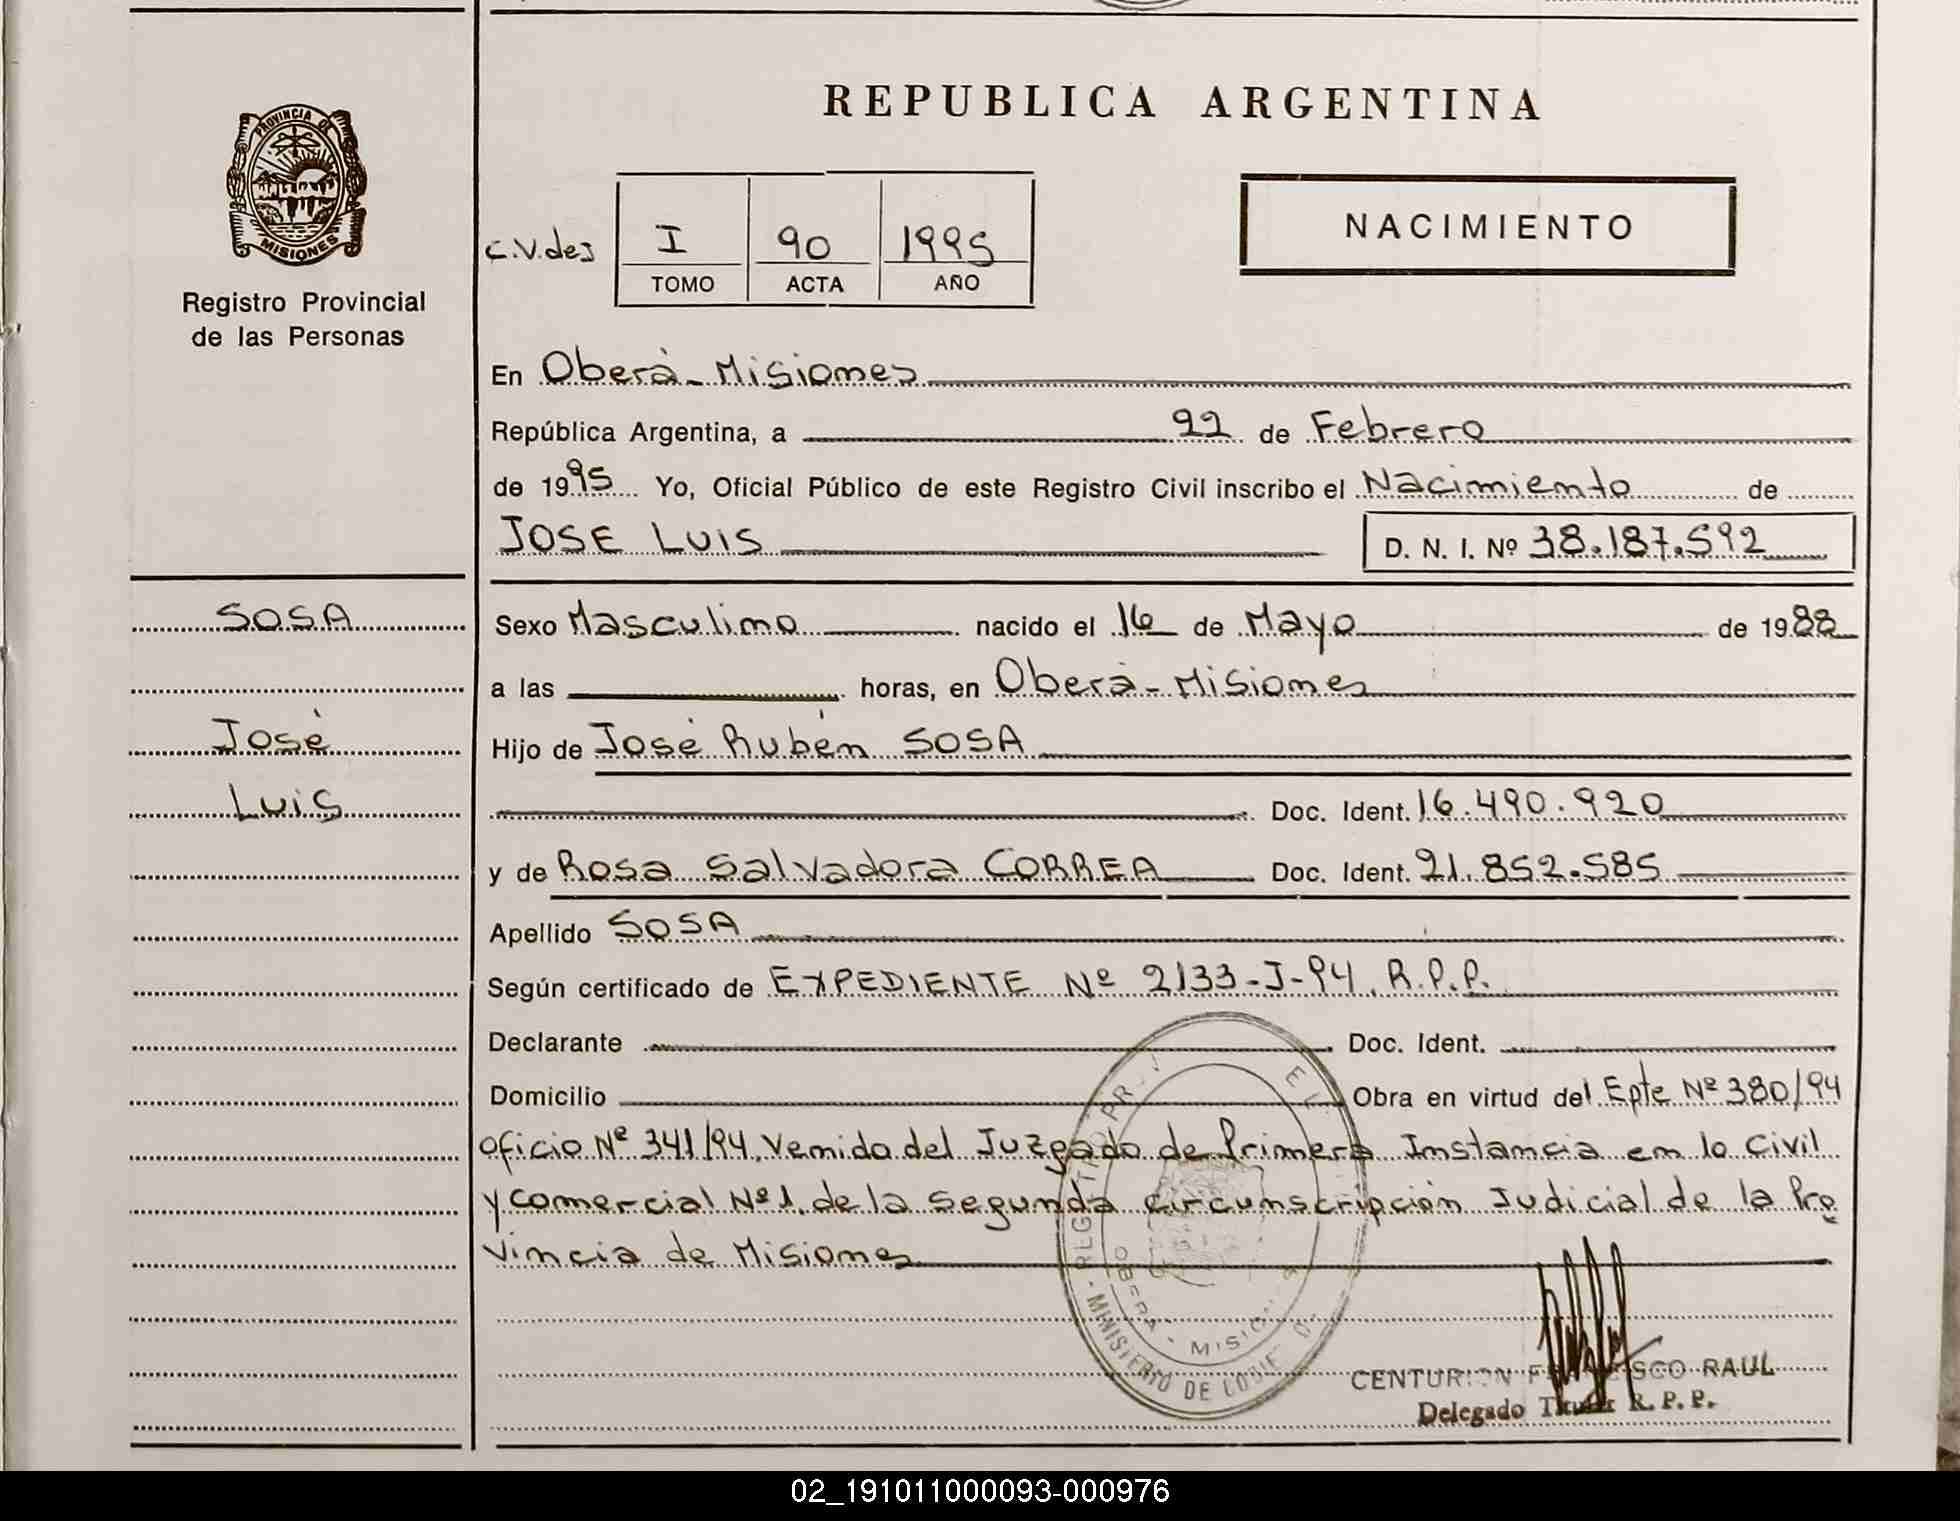 PROVINCIA DE
MISIONES
Registro Provincial
de las Personas
REPUBLICA ARGENTINA
NACIMIENTO
I 90 1995
TOMO ACTA AÑO
En Oberá - Misiones
República Argentina, a 22 de Febrero
de 1995 Yo, Oficial Público de este Registro Civil inscribo el Nacimiento de
JOSE LUIS D. N. I. Nº 38.187.592
SOSA
José
Luis
Sexo Masculino nacido el 16 de Mayo de 1988
a las horas, en Oberá - Misiones
Hijo de José Rubén SOSA
Doc. Ident. 16.490.920
y de Rosa Salvadora CORREA Doc. Ident. 21.852.585
Apellido SOSA
Según certificado de EXPEDIENTE Nº 2133-J-94. R.P.P.
Declarante Doc. Ident.
Domicilio Obra en virtud del Epte Nº 380/94
oficio Nº 341/94. Venido del Juzgado de Primera Instancia en lo Civil
y Comercial Nº1. de la Segunda Circunscripción Judicial de la Pro
vincia de Misiones
OBERA - MISIONES
MINISTERIO DE
CENTURION FRANCISCO RAUL
Delegado Titular R. P. P.
02_191011000093-000976